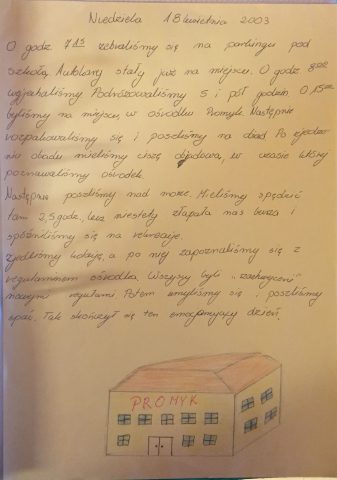 Niedziela 18 kwietnia 2003
O godz. 7¹⁵ zebraliśmy się na parkingu pod
szkołą. Autokary stały już na miejscu. O godz. 8⁰⁰
wyjechaliśmy. Podróżowaliśmy 5 i pół godzin. O 15⁰⁰
byliśmy na miejscu, w ośrodku Promyk. Następnie
rozpakowaliśmy się i poszliśmy na obiad. Po zjedze-
niu obiadu mieliśmy ciszę, w czasie której
poznawaliśmy ośrodek.
Następnie poszliśmy nad morze. Mieliśmy spędzić
tam 2,5 godz., lecz niestety złapała nas burza i
spóźniliśmy się na
Zjedliśmy kolację, a po niej zapoznaliśmy się z
regulaminem ośrodka. Wszyscy byli „zachwyceni”
nowymi regułami. Potem umyliśmy się i poszliśmy
spać. Tak skończył się ten emocjonujący dzień.
PROMYK